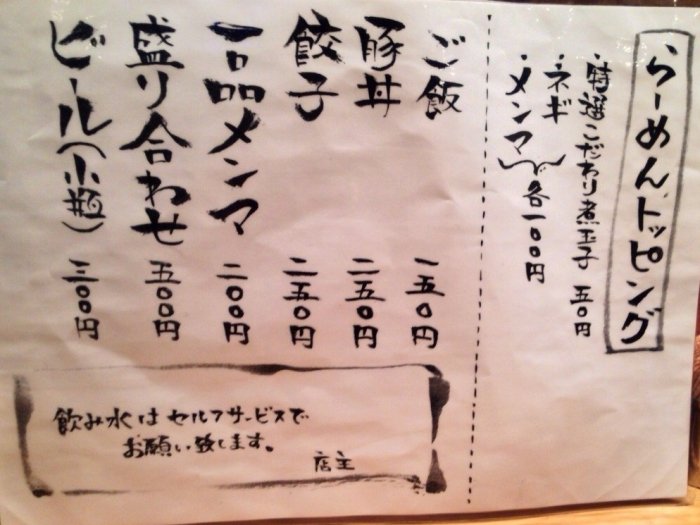 らーめんトッピング
・特選こだわり煮玉子 五〇円
・ネギ
・メンマ 各一〇〇円
ご飯 一五〇円
豚丼 二五〇円
餃子 二五〇円
一品メンマ 二〇〇円
盛り合わせ 五〇〇円
ビール(小瓶) 三〇〇円
飲み水はセルフサービスで
お願い致します。
店主